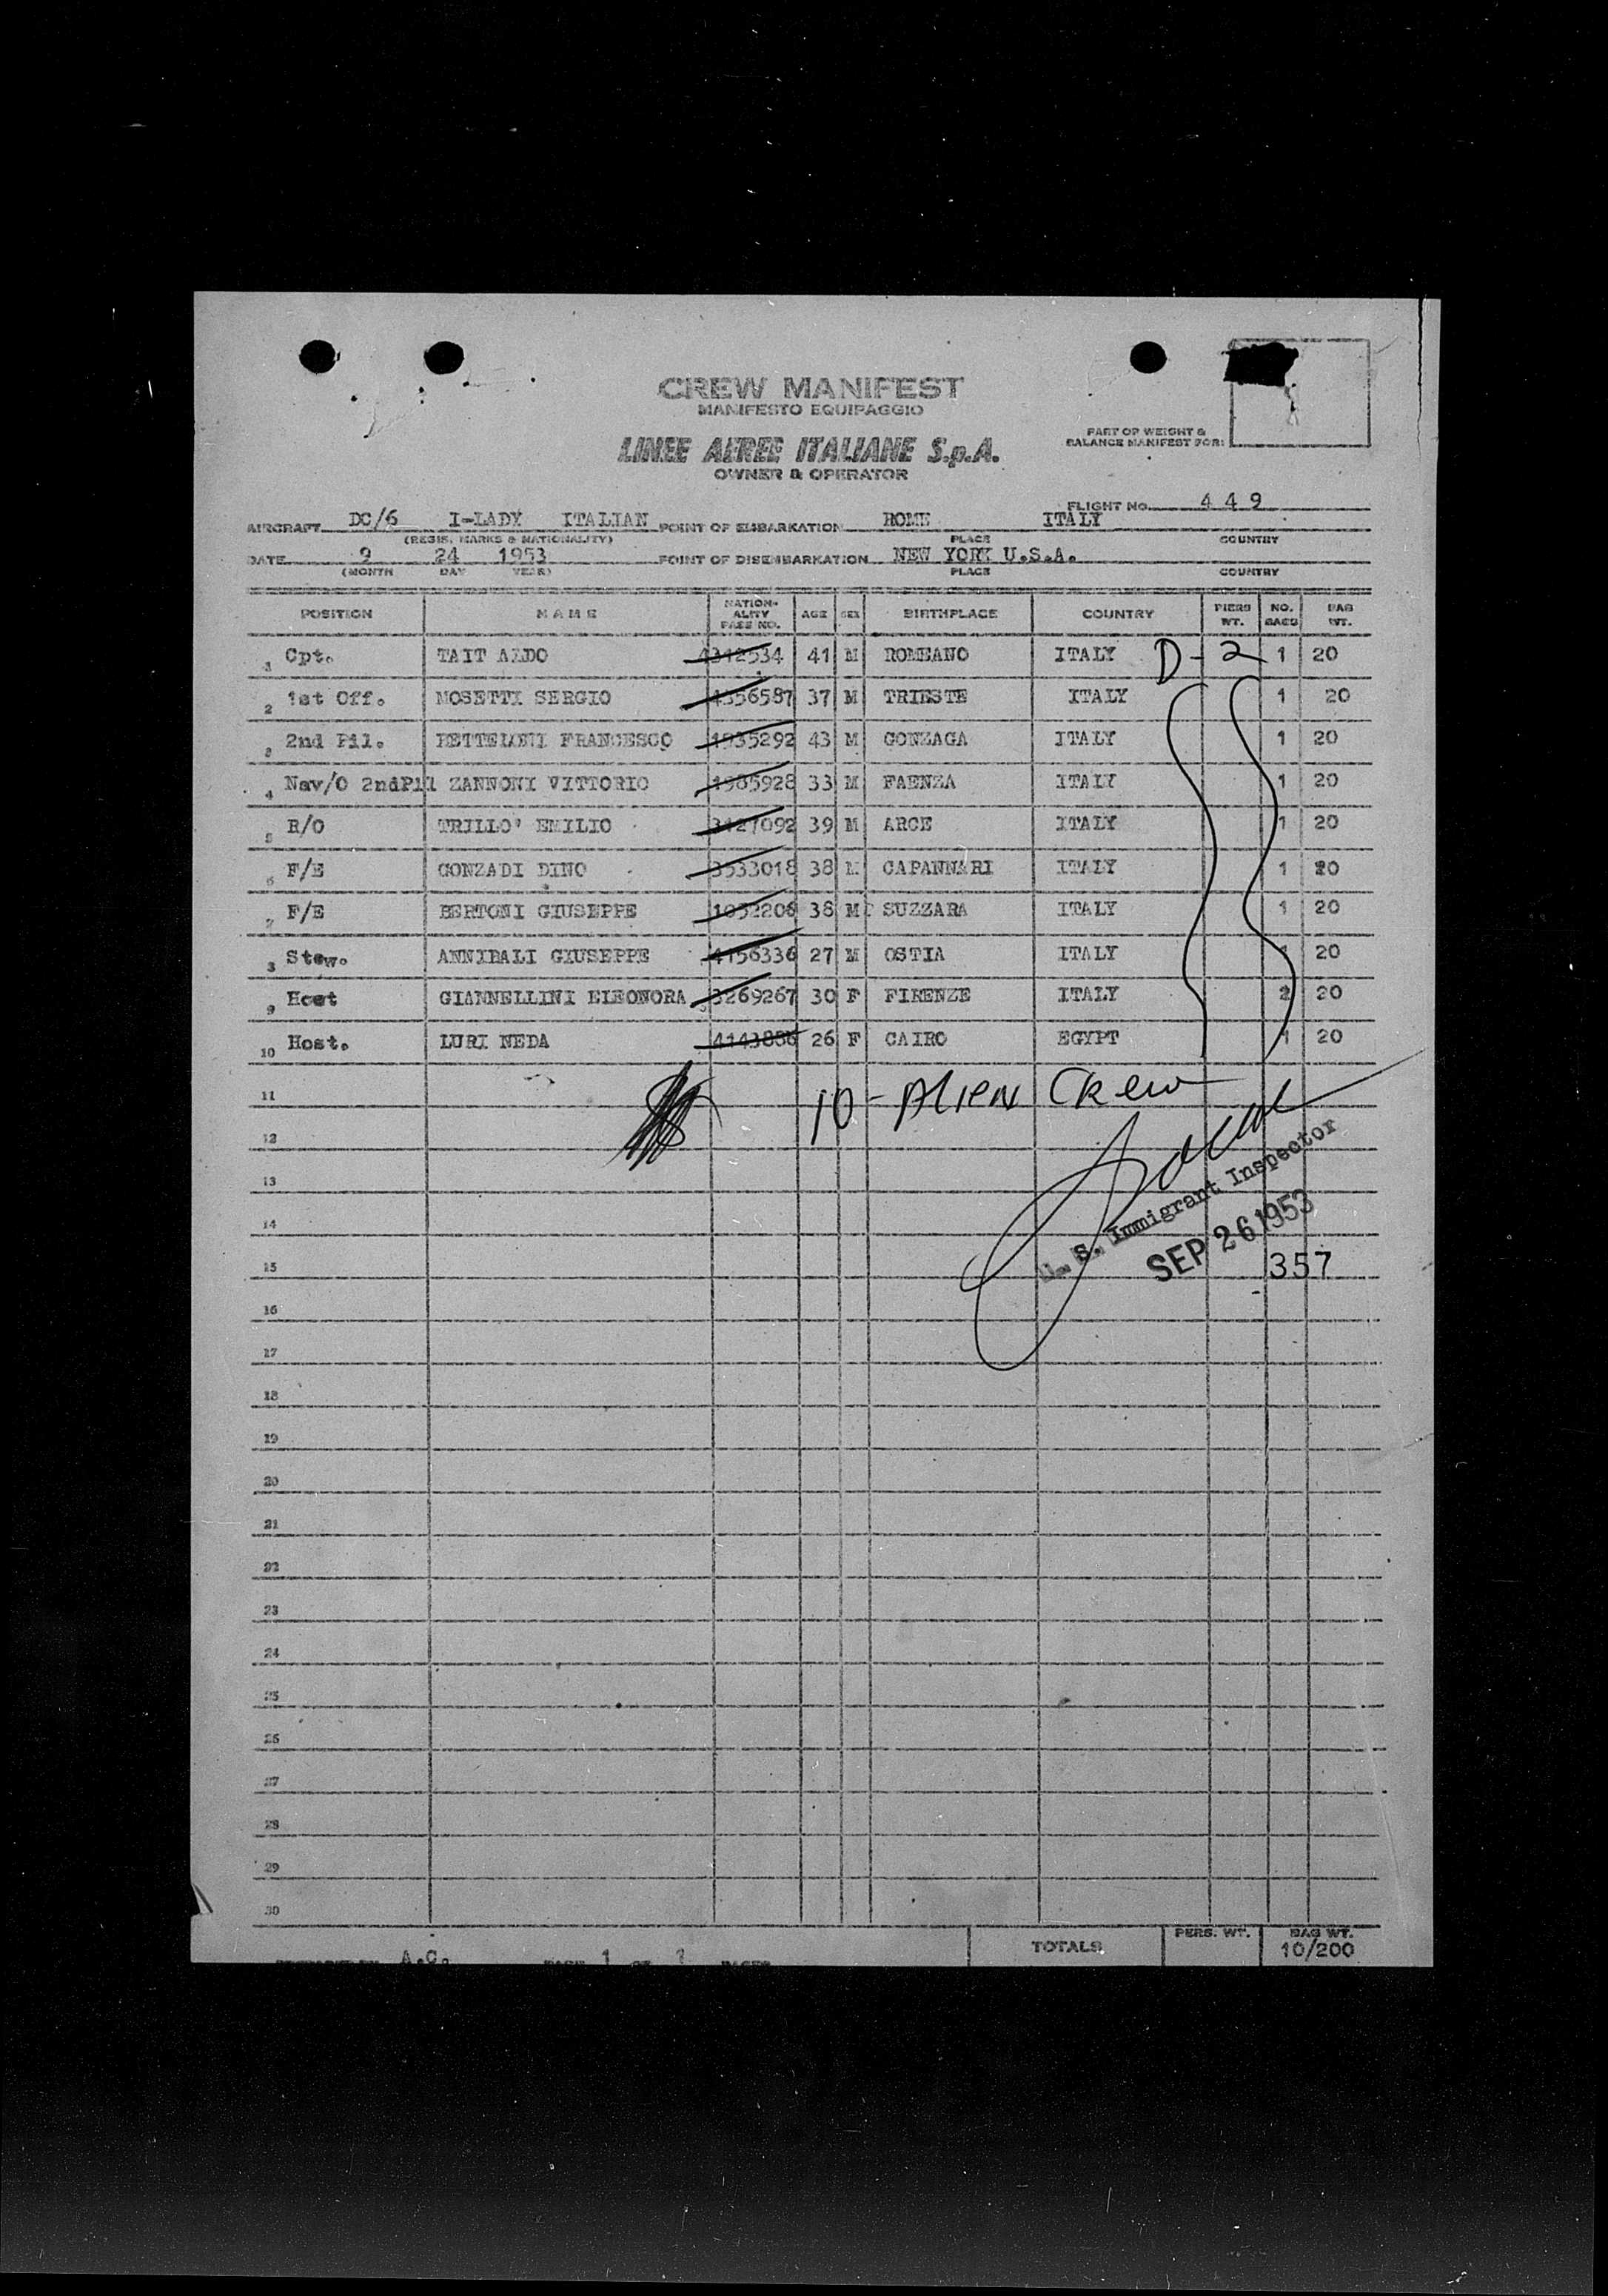 CREW MANIFEST
MANIFESTO EQUIPAGGIO
LINEE AEREE ITALIANE S.p.A.
OWNER & OPERATOR
PART OF WEIGHT &
BALANCE MANIFEST FOR:
FLIGHT NO. 449
AIRCRAFT DC/6 I-LADY ITALIAN POINT OF EMBARKATION ROME ITALY
(REGIS. MARKS & NATIONALITY) PLACE COUNTRY
DATE 9 24 1953 POINT OF DISEMBARKATION NEW YORK U.S.A.
(MONTH DAY YEAR) PLACE COUNTRY
POSITION NAME NATION-ALITY PASS NO. AGE SEX BIRTHPLACE COUNTRY PERS WT. NO. BAGS BAG WT.
1 Cpt. TAIT ALDO 4312534 41 M ROMEANO ITALY D-2 1 20
2 1st Off. NOSETTI SERGIO 4356587 37 M TRIESTE ITALY 1 20
3 2nd Pil. BETTELONI FRANCESCO 1935292 43 M GONZAGA ITALY 1 20
4 Nav/O 2ndPil ZANNONI VITTORIO 1985928 33 M FAENZA ITALY 1 20
5 R/O TRILLO' EMILIO 3127092 39 M ARCE ITALY 1 20
6 F/E GONZADI DINO 3533018 38 M CAPANNARI ITALY 1 20
7 F/E BERTONI GIUSEPPE 38 M SUZZARA ITALY 1 20
8 Stew. ANNIBALI GIUSEPPE 4156336 27 M OSTIA ITALY 1 20
9 Host GIANNELLINI ELEONORA 3269267 30 F FIRENZE ITALY 2 20
10 Host. LURI NEDA 26 F CAIRO EGYPT 1 20
11 10-Alien Crew
12
13
U. S. Immigrant Inspector
14
SEP 26 1953
15 357
16
17
18
19
20
21
22
23
24
25
26
27
28
29
30
TOTALS PERS. WT. BAG WT.
10/200
A.C. PAGE 1 OF PAGES